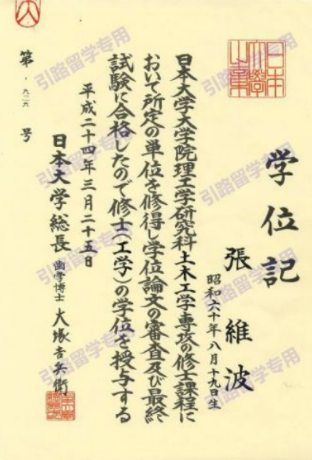 学位記
張維波
昭和六十年八月十九日生
日本大学大学院理工学研究科土木工学専攻の修士課程に
おいて所定の単位を修得し学位論文の審査及び最終
試験に合格したので修士(工学)の学位を授与する
平成二十四年三月二十五日
日本大学総長 歯学博士 大塚吉兵衛
第
号
引路留学专用
引路留学专用
引路留学专用
引路留学专用
引路留学专用
引路留学专用